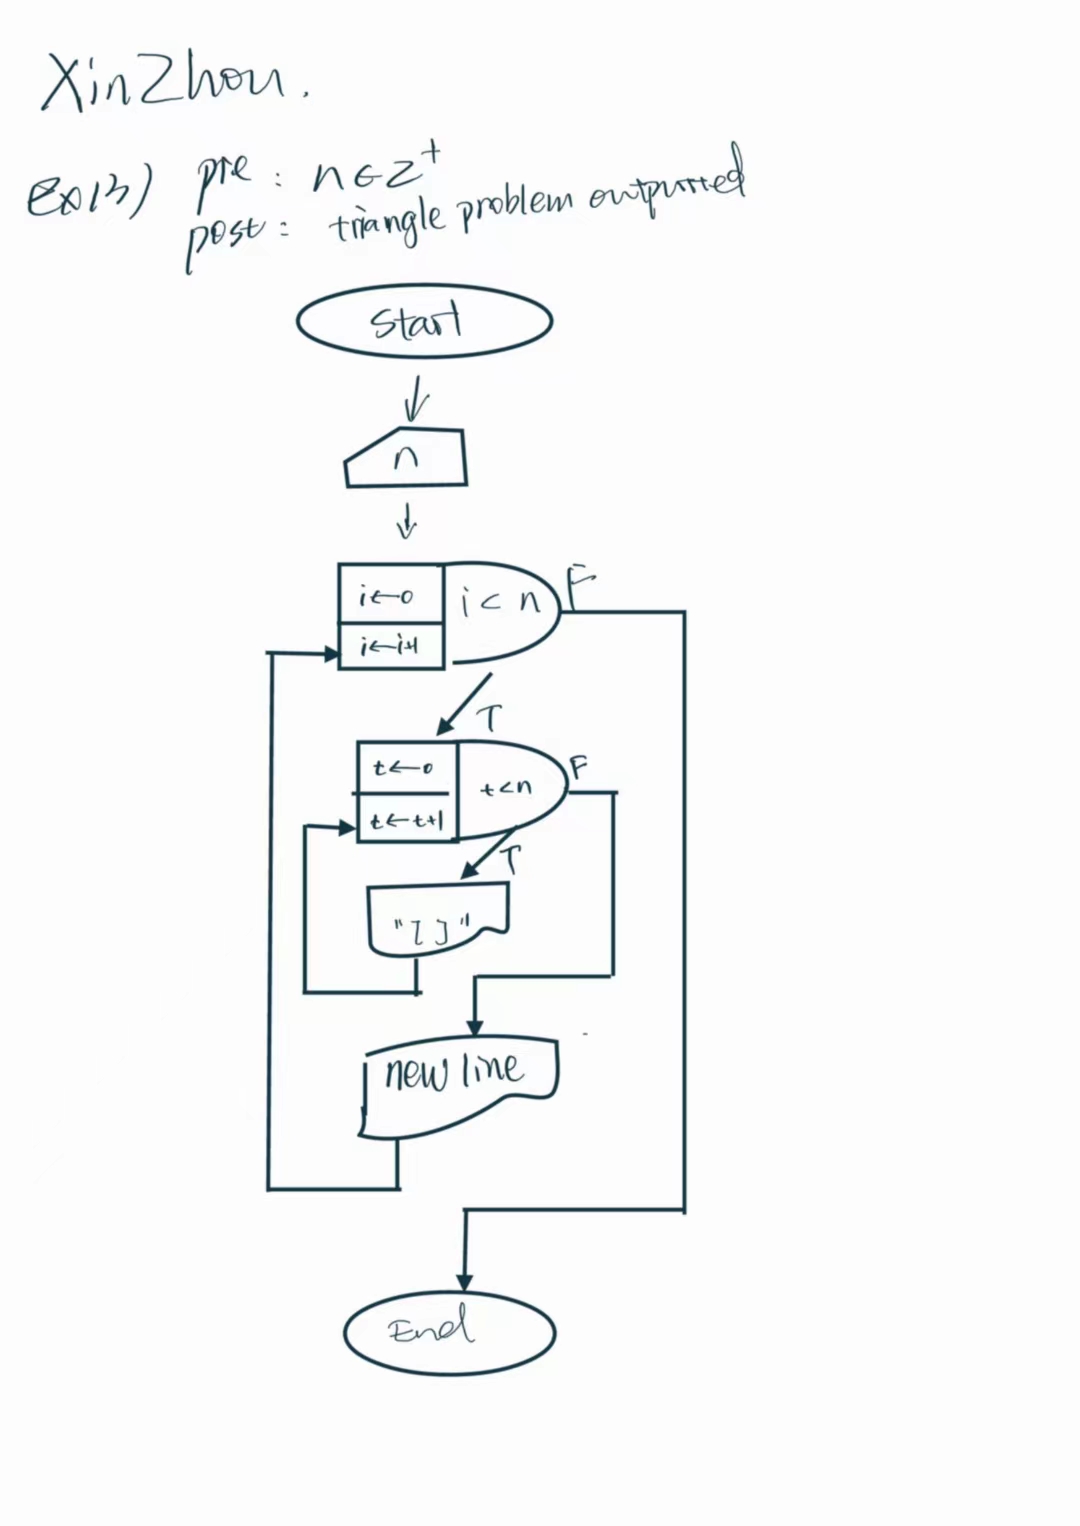 XinZhou.
Ex13) pre : n∈Z⁺
post : triangle problem outputted
Start
n
i←0
i < n
F
i←i+1
T
t←0
t<n
F
t←t+1
T
"[ ]"
new line
End